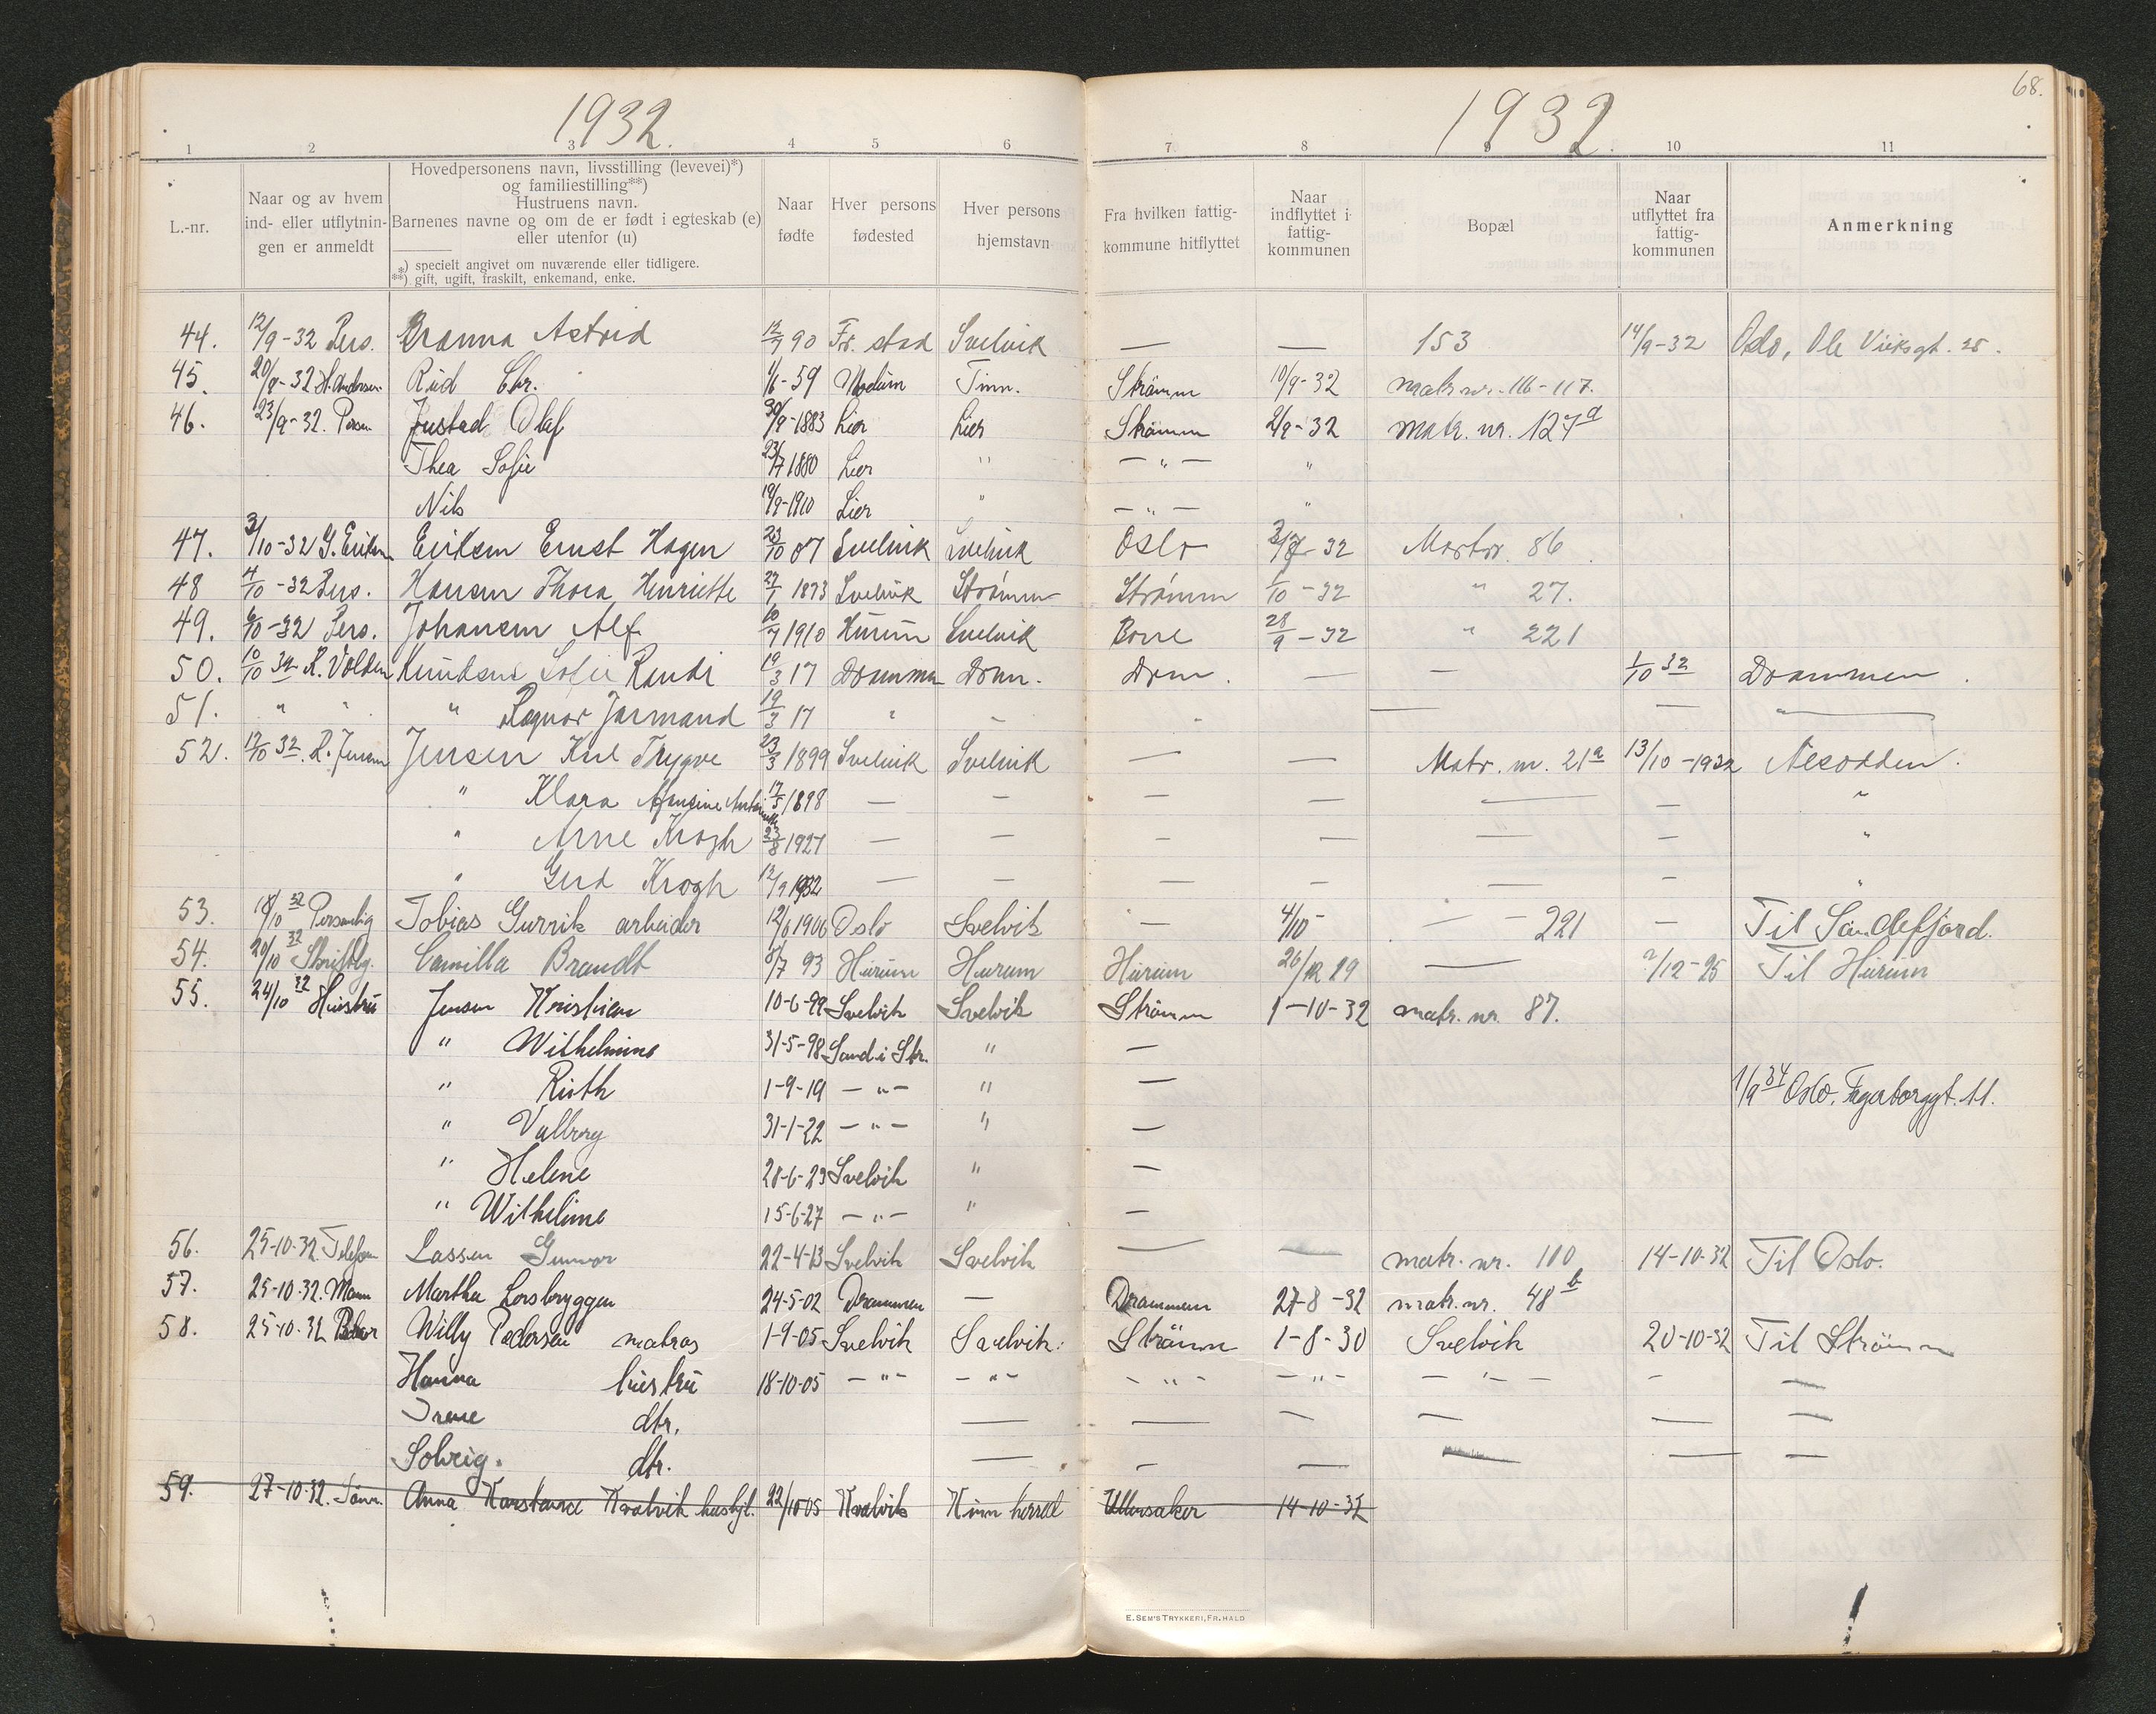 68.
1932. 1932.
1 2 3 4 5 6 7 8 9 10 11
L.-nr.
Naar og av hvem
ind- eller utflytnin-
gen er anmeldt
Hovedpersonens navn, livsstilling (levevei)*)
og familiestilling**)
Hustruens navn.
Barnenes navne og om de er født i egteskab (e)
eller utenfor (u)
*) specielt angivet om nuværende eller tidligere.
**) gift, ugift, fraskilt, enkemand, enke.
Naar
fødte
Hver persons
fødested
Hver persons
hjemstavn
Fra hvilken fattig-
kommune hitflyttet
Naar
indflyttet i
fattig-
kommunen
Bopæl
Naar
utflyttet fra
fattig-
kommunen
Anmerkning
44. 12/9-32 Pers. Branna Astrid 12/9 90 Fr. stad Svelvik — — 153 14/9-32 Oslo, Ole Viiksgt. 25.
45. 20/9-32 H. Andersen Rud Chr. 1/1-59 Modum Tinn. Strömm 10/9-32 matr. nr. 116-117.
46. 23/9-32. Person Justad Olaf 30/9-1883 Lier Lier Strömm 2/9-32 matr. nr. 127a
Thea Sofie 23/7 1880 Lier " — " — "
Nils 19/9-1910 Lier " — " — "
47. 3/10-32 G. Eriksen Eriksen Ernst Hagen 23/10 07 Svelvik Svelvik Oslo 3/7-32 Martr. 86
48 4/10-32 Pers. Hansen Thora Henriette 27/1 1873 Svelvik Strømm Strømm 1/10-32 " 27.
49. 6/10-32 Pers. Johansen Alf. 10/7 1910 Hurum Svelvik Borre 28/9-32 " 221
50. 10/10 32 R. Volden Knudsen Sofie Randi 19/3 17 Drammen Drm. Drm. — — 1/10 32 Drammen.
51. " " " Ragnar Jarmand 19/3 17 " — " — — "
52. 12/10 32. R. Jensen Jensen Karl Trygve 23/3 1899 Svelvik Svelvik — — Matr. nr. 21a 13/10-1932 Nesodden.
" Klara 17/5 1898 — — — — — — "
" Arne Krogh 23/8 1927 — — — — — — "
" Gerd Krogh 12/9 1932 — — — — — — "
53. 18/10 32 Personlig Tobias Gurrik arbeider 12/6 1906 Oslo Svelvik — 4/10- — - 221 — Til Sandefjord.
54. 20/10 32 Skriftlig. Camilla Brandt 8/7 93 Hurum Hurum Hurum 26/12 29 — 2/12-25 Til Hurum
55. 24/10 32 Hustru Jensen Kristian 10-6-99 Svelvik Svelvik Strömm 1-10-32 matr. nr. 87.
" Wilhelmine 31-5-98 Sand i Str. " —
" Ruth 1-9-19 — " — " — 1/9 34 Oslo, Fagerborggt. 11.
" Valborg 31-1-22 — " — " —
" Helene 28-6-23 Svelvik " —
" Wilhelmine 15-6-27 — " — " —
56. 25-10-32. Telefon Lassen Gunvor 22-4-13 Svelvik Svelvik — — matr. nr. 110 14-10-32 Til Oslo.
57. 25-10-32. Mann Martha Losbryggen 24-5-02 Drammen — Drammen 27-8-32 matr. nr. 48b
58. 25-10-32 Willy Pedersen matros 1-9-05 Svelvik Svelvik. Strömm 1-8-30 Svelvik 20-10-32 Til Strömm
Hanna hustru 18-10-05 — " — — " — — " — — " — — " — — —
Irene dtr. — — — — — —
Solveig. dtr. — — — — — —
59. 27-10-32. Anna Konstance Kvalvik hushjl. 22/10-05 Kvalvik Kinn herred Ullensaker 14-10-32
E. SEM'S TRYKKERI, FR.HALD